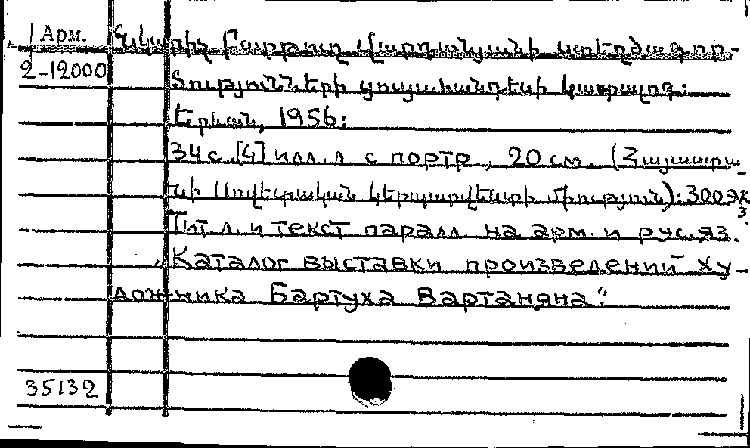 Арм. Նկարիչ Բարթուղ Վարդանյանի ստեղծագոր-
2-12000 ծությունների ցուցահանդեսի կատալոգ:
Երևան, 1956:
34 с. [4] илл. л с портр., 20 см. (Հայաստա-
նի Սովետական կերպարվեստի միություն): 300 экз.
Тит. л. и текст паралл. на арм. и рус. яз.
„Каталог выставки произведений ху-
дожника Бартуха Вартаняна."
35132